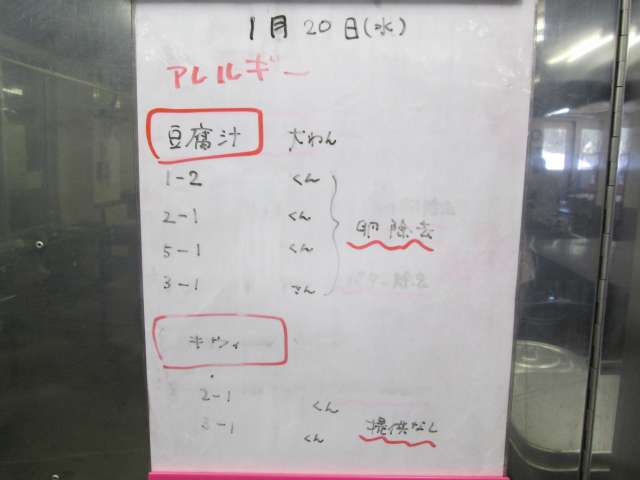 1月20日(水)
アレルギー
豆腐汁 大わん
1-2 くん
2-1 くん
5-1 くん
卵除去
3-1 さん
キウイ
2-1 くん
3-1 くん 提供なし